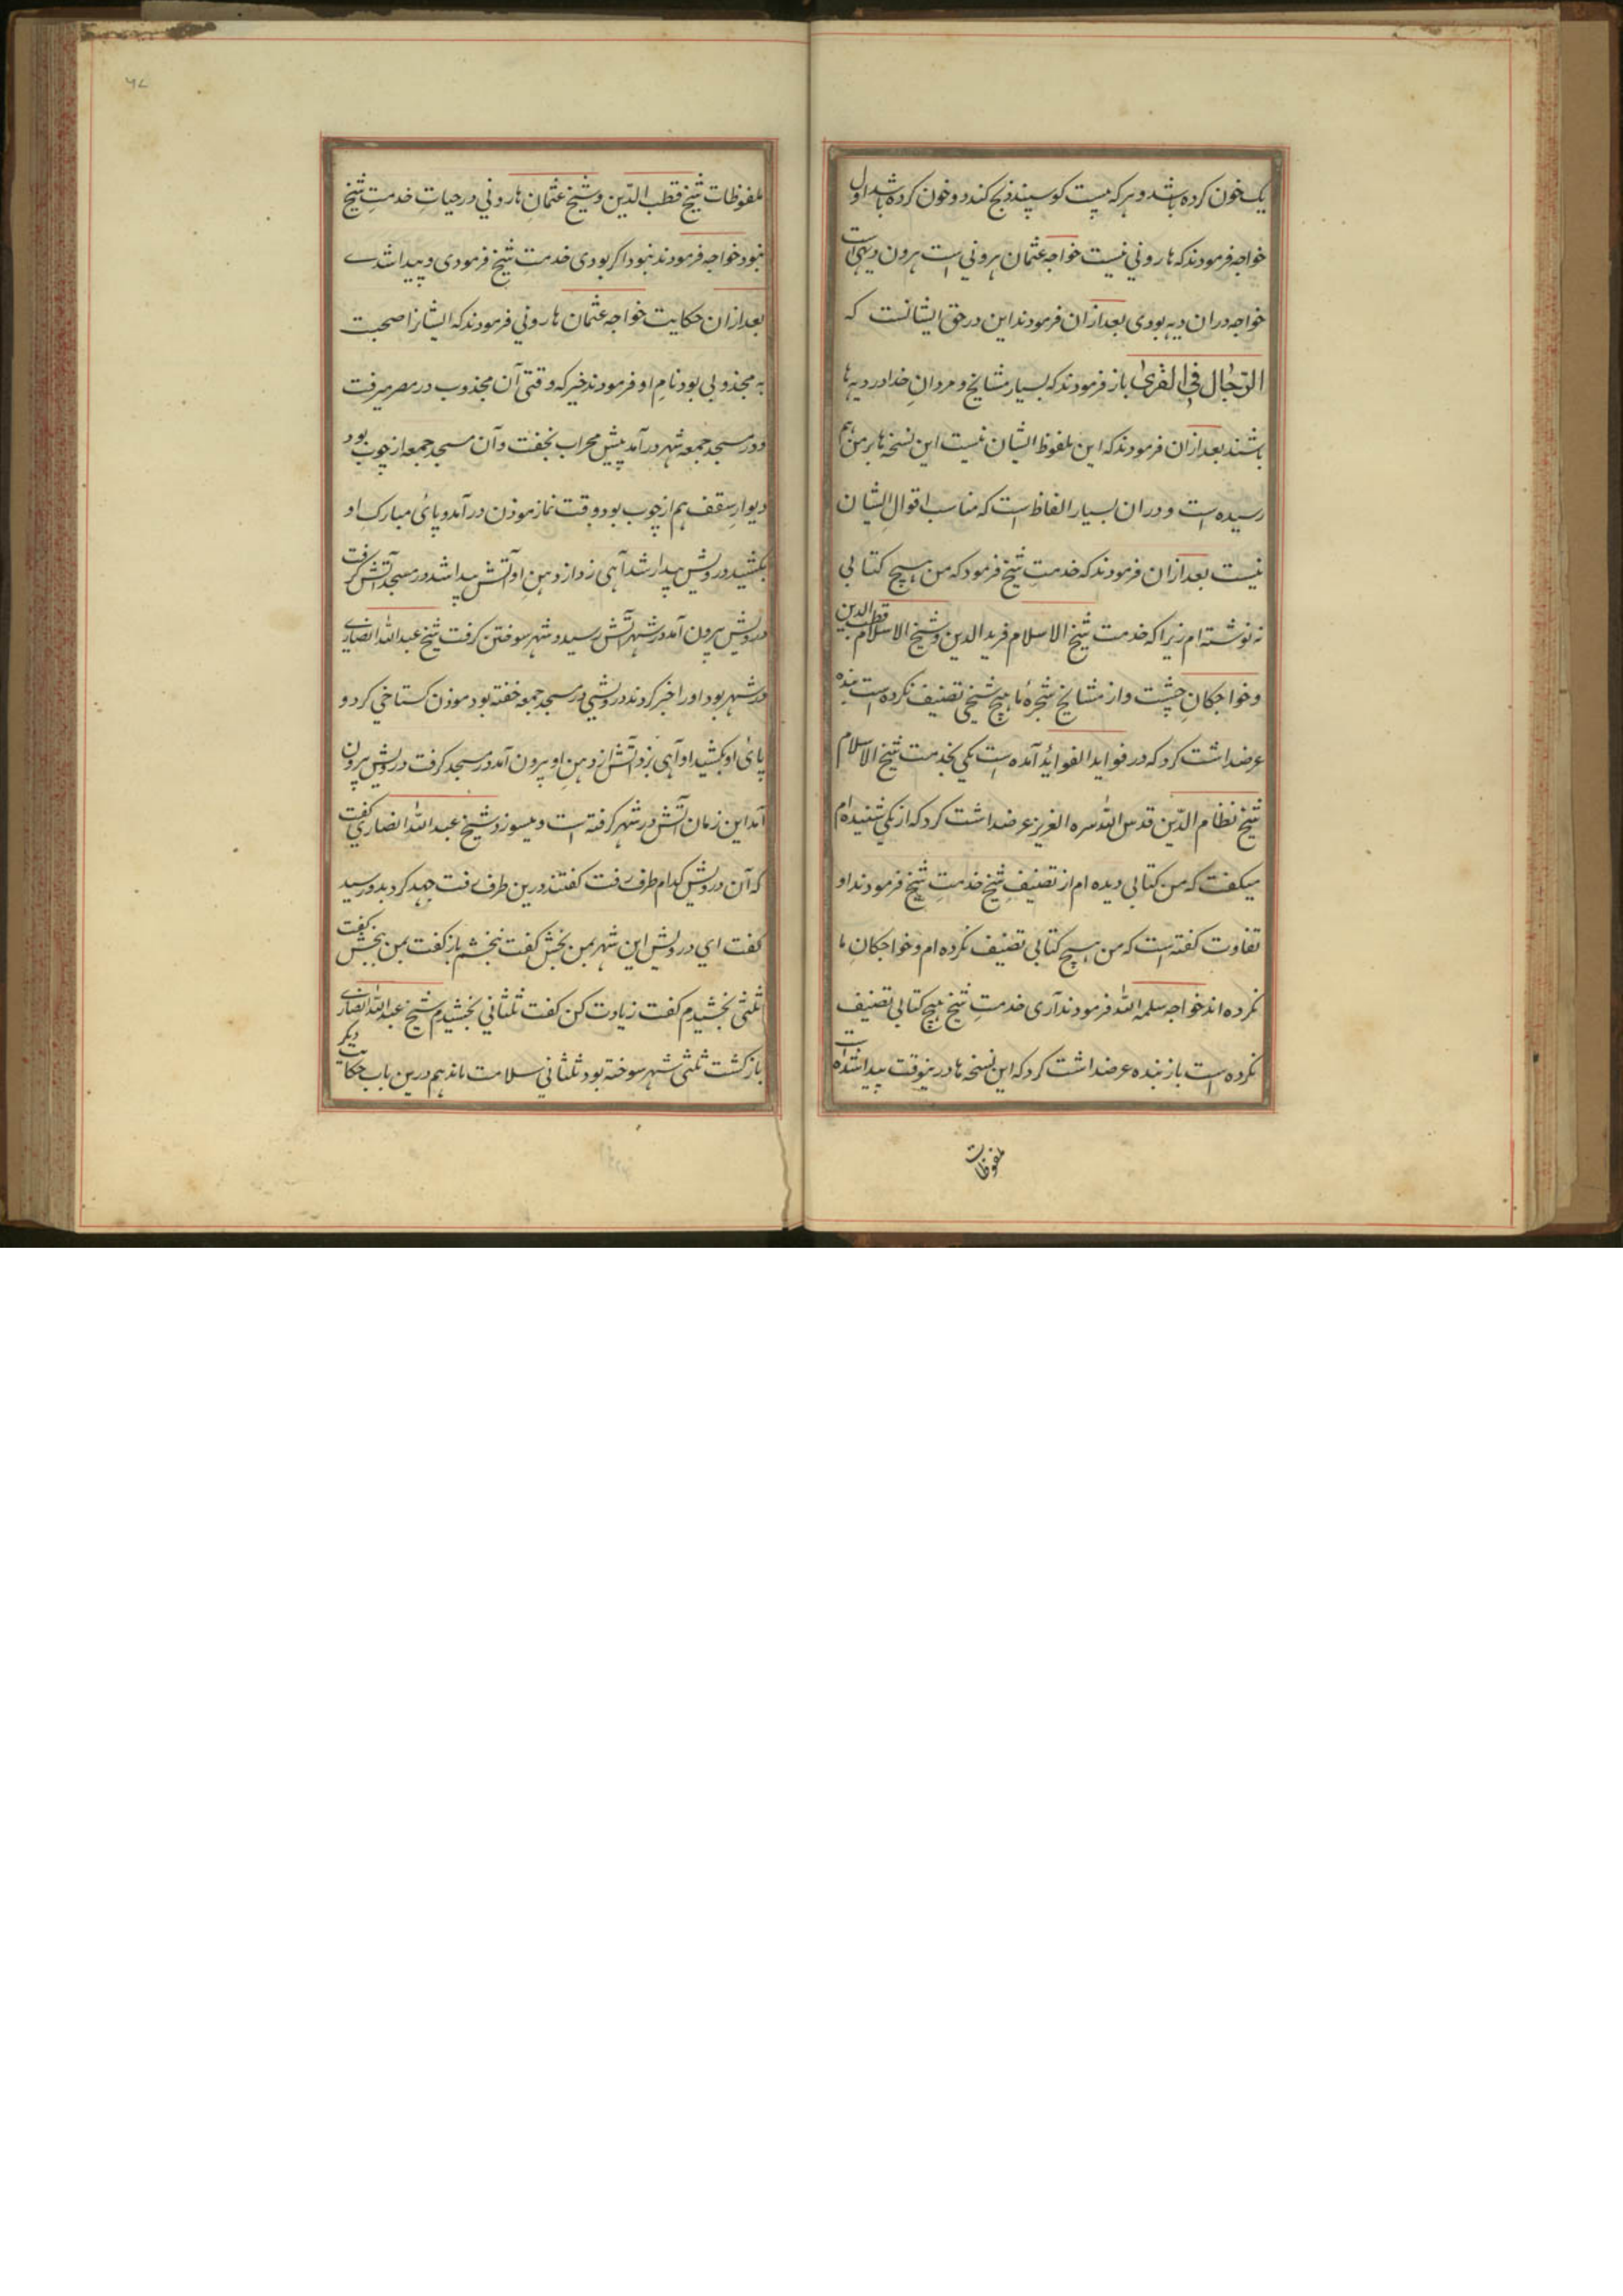 یک خون کرده باشد و هر که بیست کوسپند ذبح کند دو خون کرده باشد اول
خواجه فرمودند که هارونی نیست خواجه عثمان هرونی است هرون دیهی است
خواجه در ان دیه بودی بعد ازان فرمودند این در حق ایشانست که
الرّجال فی القری باز فرمودند که بسیار مشایخ و مردانِ خدا در دیه ها
باشند بعد ازان فرمودند که این ملفوظ ایشان نیست این نسخه ها بر من هم
رسیده است و در ان بسیار الفاظ است که مناسب اقوالِ ایشان
نیست بعد ازان فرمودند که خدمتِ شیخ فرمود که من هیچ کتابی
نه نوشته ام زیرا که خدمت شیخ الاسلام فرید الدین و شیخ الاسلام قطب الدین
و خواجکانِ چشت و از مشایخِ شجرهٔ ما هیچ شیخی تصنیف نکرده است بنده
عرضداشت کرد که در فواید الفوائد آمده است یکی بخدمت شیخ الاسلام
شیخ نظام الدّین قدس اللّه سره العزیز عرضداشت کرد که از یکی شنیده ام
میکفت که من کتابی دیده ام از تصنیفِ شیخ خدمتِ شیخ فرمودند او
تفاوت کفته است که من هیچ کتابی تصنیف نکرده ام و خواجکانِ ما
نکرده اند خواجه سلمه اللّه فرمودند آری خدمتِ شیخ هیچ کتابی تصنیف
نکرده است باز بنده عرضداشت کرد که این نسخه ها درینوقت پیدا شده است
ملفوظات
۶۷
ملفوظات شیخ قطب الدّین و شیخ عثمانِ هارونی در حیاتِ خدمتِ شیخ
نبود خواجه فرمودند نبود اکر بودی خدمتِ شیخ فرمودی و پیدا شدے
بعد ازان حکایت خواجه عثمان هارونی فرمودند که ایشانرا صحبت
به مجذوبی بود نامِ او فرمودند خیر که وقتی آن مجذوب در مصر میرفت
و در مسجد جمعه شهر درآمد پیشِ محراب بخفت و آن مسجد جمعه از چوب بود
دیوار سقف هم از چوب بود وقت نماز موذن درآمد و پائ مبارک او
بکشید درویش بیدار شد آهی زد از دهنِ او آتش پیدا شد در مسجد آتش کرفت
درویش بیرون آمد در شهر آتش رسید و شهر سوختن کرفت شیخ عبد اللّه انصاری
در شهر بود او را خبر کردند درویشی در مسجد جمعه خفته بود موذن کستاخی کرد و
پائ او بکشید او آهی بزد آتش از دهنِ او بیرون آمد در مسجد کرفت درویش بیرون
آمد این زمان آتش در شهر کرفته است و میسوزد شیخ عبد اللّه انصاری کفت
که آن درویش کدام طرف رفت کفتند درین طرف رفت جهد کرد بدو رسید
کفت ای درویش این شهر بمن بخش کفت نبخشم باز کفت بمن ببخش کفت
ثلثی بخشیدم کفت زیادت کن کفت ثلثانی بخشیدم شیخ عبد اللّه انصاری
باز کشت ثلثی شهر سوخته بود ثلثانی سلامت ماند هم درین باب حکایت دیکر